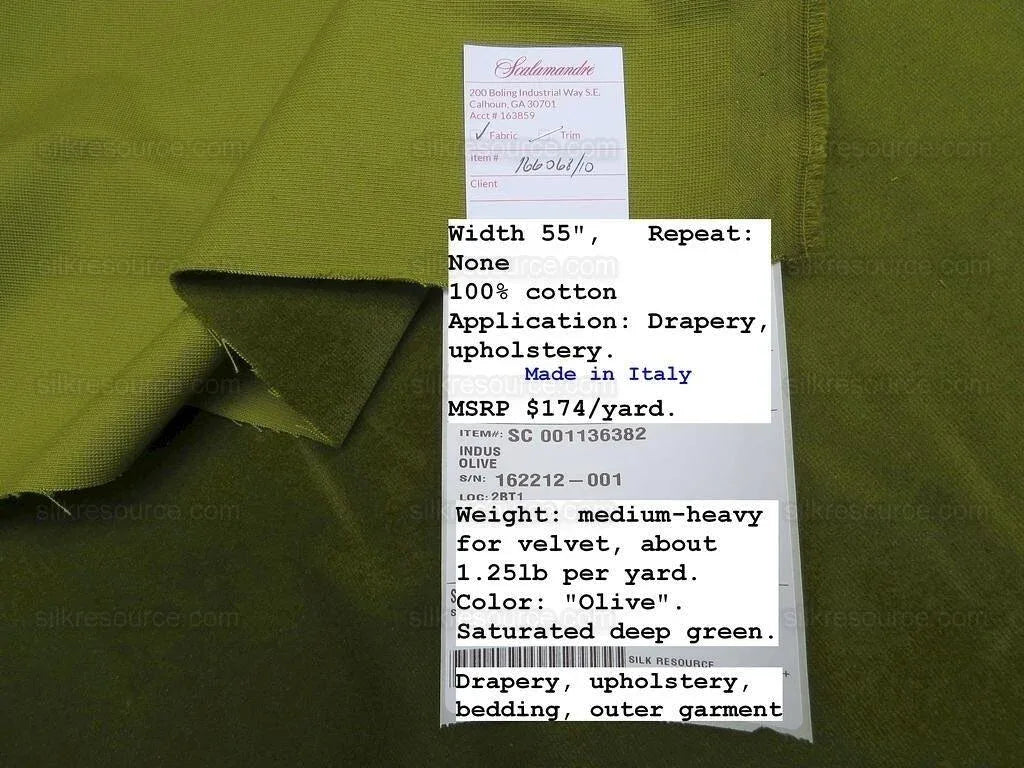 Scalamandre
200 Boling Industrial Way S.E.
Calhoun, GA 30701
Acct # 163859
✓ Fabric Trim
Item #
Client
Width 55", Repeat:
None
100% cotton
Application: Drapery,
upholstery.
Made in Italy
MSRP $174/yard.
ITEM#: SC 001136382
INDUS
OLIVE
S/N: 162212-001
LOC: 2BT1
Weight: medium-heavy
for velvet, about
1.25lb per yard.
Color: "Olive".
Saturated deep green.
SILK RESOURCE
Drapery, upholstery,
bedding, outer garment
silkresource.com